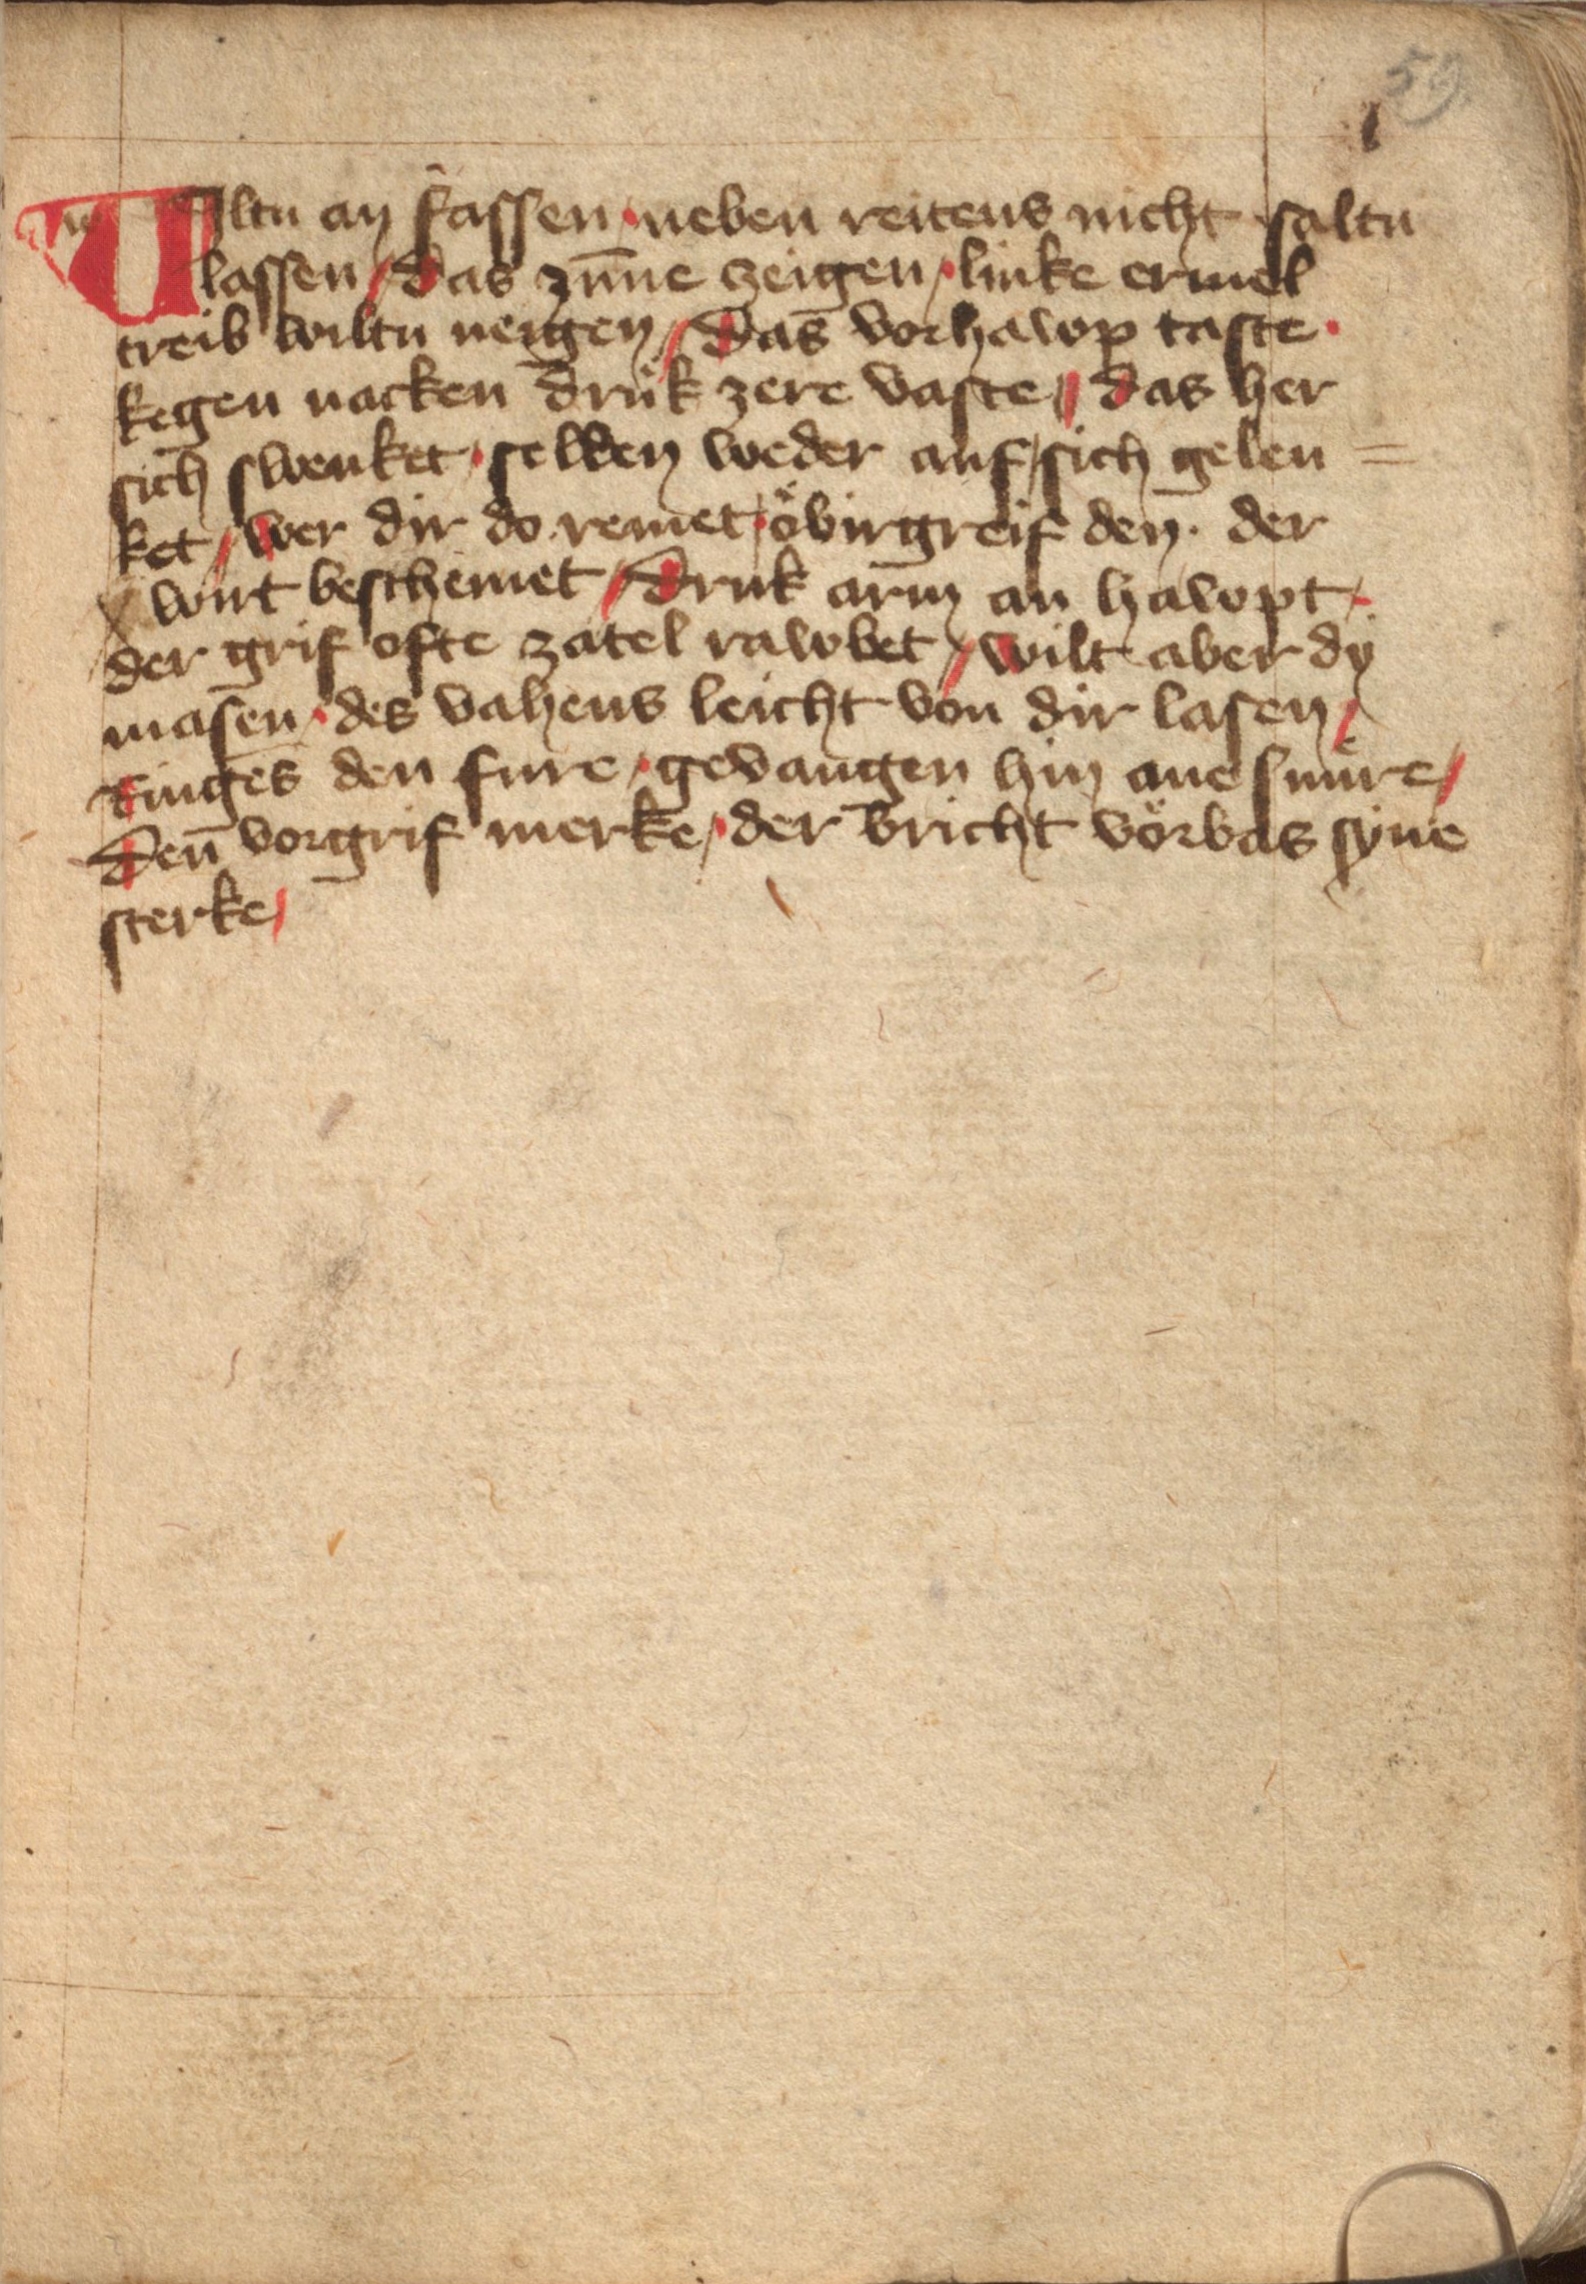 59.
Wiltu an fassen · neben reitens nicht saltu
lassen / das zu̅ne zeigen · linke ermel
treib wiltu neigen / Das vorhawp taste ·
kegen nacken druͤk zere vaste / das her
sich swenket · selden weder auf sich gelen =
ket / wer dir do remet · öbirgreif den · der
wirt beschemet / Druk arm an hawpt ·
der grif ofte zatel rawbet / wilt aber dÿ
masen · des vahens leicht von dir lasen /
Ringes den fure · gevangen hin ane snuͤre /
Den̅ vorgrif merke · der bricht vörbas syne
sterke /